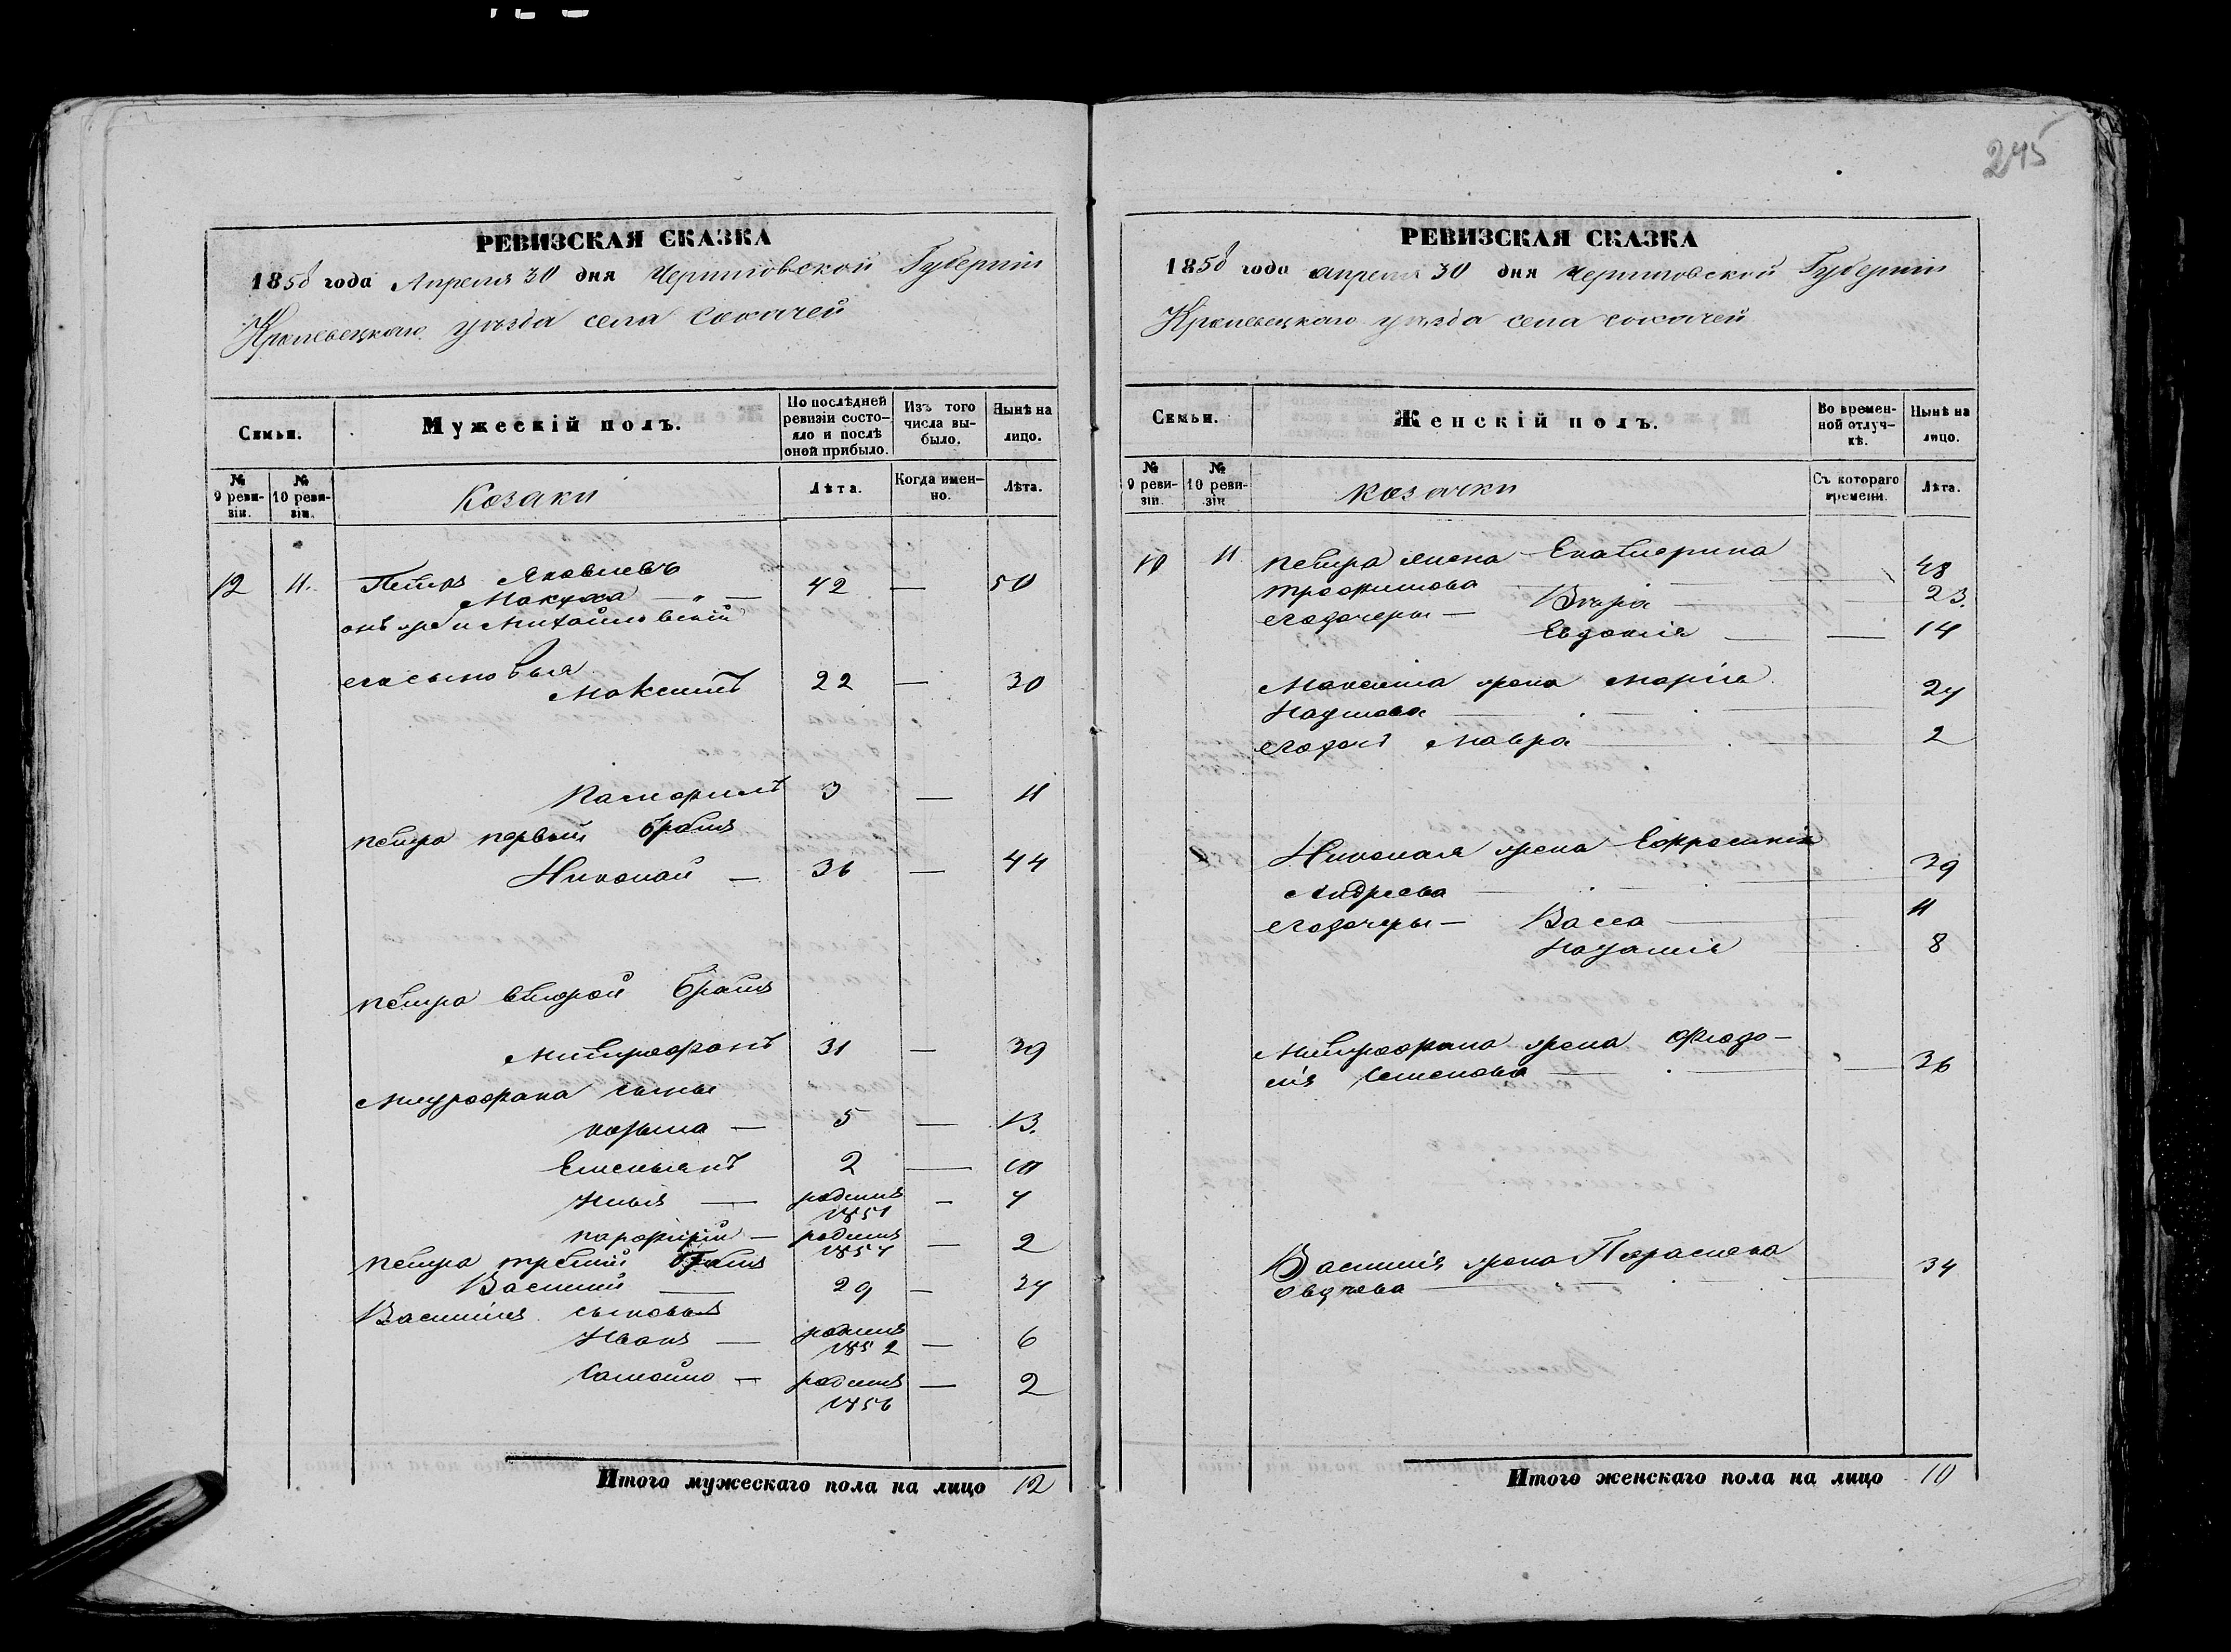 245
РЕВИЗСКАЯ СКАЗКА
1858 года Апреля 30 дня Черниговской Губернiи
Кролевецкаго уѣзда села Сохачей
Семьи.
Мужескій полъ.
По послѣдней ревизіи состояло и послѣ оной прибыло.
Изъ того числа выбыло.
Нынѣ на лицо.
№ 9 ревизіи.
№ 10 ревизіи.
Козаки
Лѣта.
Когда именно.
Лѣта.
12 11. Петръ Яковлевъ
Макуха — „ — 42 — 50
онъ же и Михайловскій
его сыновья
Максимъ 22 — 30
Памфилъ 3 — 11
Петра первый братъ
Николай — 36 — 44
Петра второй братъ
Митрофанъ 31 — 39
Митрофана сыны
Козьма — 5 — 13.
Емельянъ 2 — 10
Илья — родился 1851 — 7
Парфирій — родился 1857 — 2
Петра третій братъ
Василий — 29 — 37
Василія сыновья
Иванъ — родился 1852 — 6
Самойло — родился 1856 — 2
Итого мужескаго пола на лицо 12
РЕВИЗСКАЯ СКАЗКА
1858 года апреля 30 дня Черниговской Губернiи
Кролевецкаго уѣзда села Сохачей
Семьи.
Женскій полъ.
Во временной отлучкѣ.
Нынѣ на лицо.
№ 9 ревизіи.
№ 10 ревизіи
козачки
Съ котораго времени.
Лѣта.
10 11 Петра жена Екатерина
Трофимова — 48
его дочери — — 23.
Евдокія — — 14
Максима жена Марія
Наумова — 27
его дочь Мавра — 2
Николая жена Ефросинія
Андреева — 39
его дочери — Васса — 11
Наталія — 8
Митрофана жена Феодо-
сія Семенова — — 36
Василія жена Параскева — 34
Итого женскаго пола на лицо 10